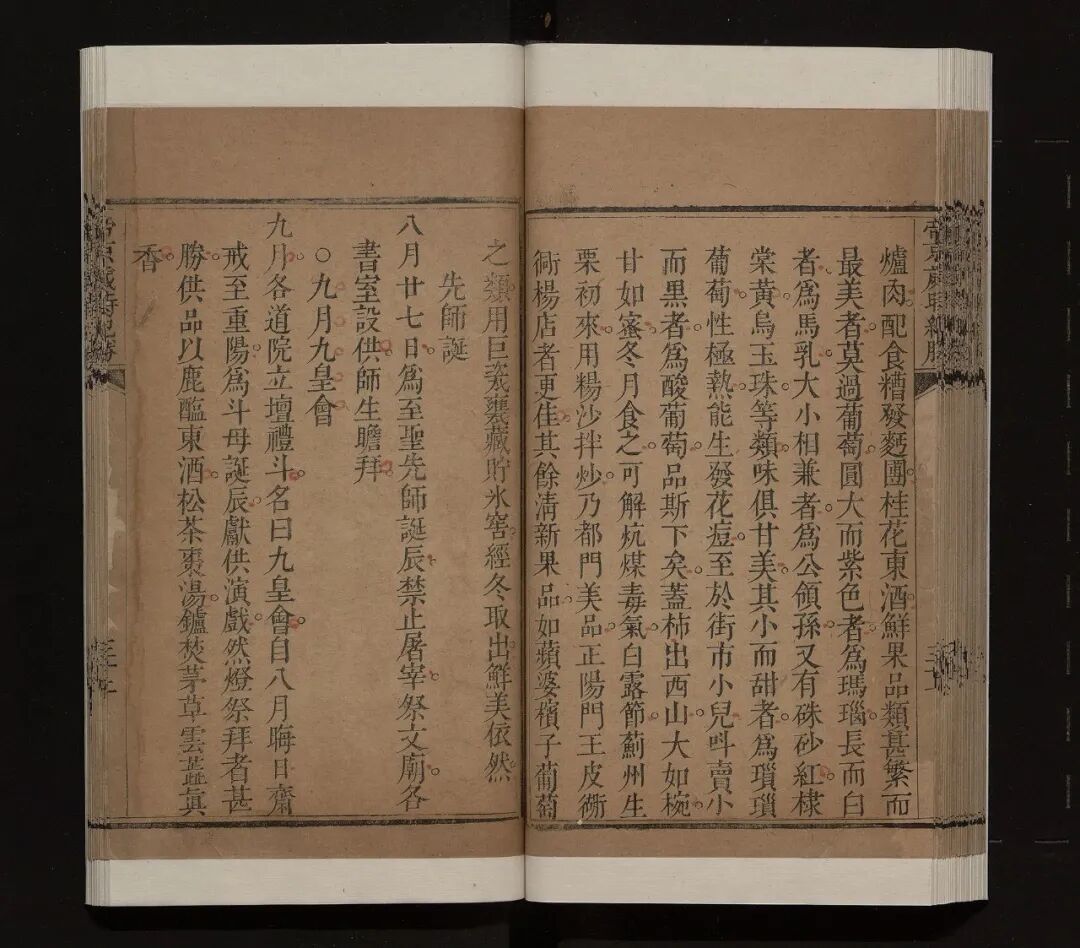 爐肉配食糟發麪團桂花東酒鮮果品類甚繁而
最美者莫過葡萄圓大而紫色者為瑪瑙長而白
者為馬乳大小相兼者為公領孫又有硃砂紅棣
棠黃烏玉珠等類味俱甘美其小而甜者為瑣瑣
葡萄性極熱能生發花痘至於街市小兒呌賣小
而黑者為酸葡萄品斯下矣蓋柿出西山大如椀
甘如蜜冬月食之可解炕煤毒氣白露節薊州生
栗初來用糖沙拌炒乃都門美品正陽門王皮衚
衕楊店者更佳其餘清新果品如蘋婆檳子葡萄
之類用巨甕藏貯氷窖經冬取出鮮美依然
先師誕
八月廿七日為至聖先師誕辰禁止屠宰祭文廟各
書室設供師生瞻拜
○九月九皇會
九月各道院立壇禮斗名曰九皇會自八月晦日齋
戒至重陽為斗母誕辰獻供演戲然燈祭拜者甚
勝供品以鹿醢東酒松茶棗湯鑪焚茅草雲蕋眞
香